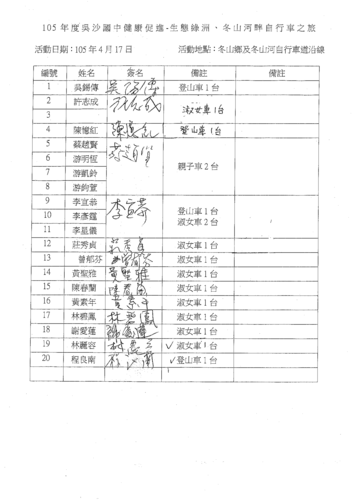 105 年度吳沙國中健康促進-生態綠洲、冬山河畔自行車之旅
活動日期：105 年 4 月 17 日 活動地點：冬山鄉及冬山河自行車道沿線
編號 姓名 簽名 備註 備註
1 吳錫傳 吳錫傳 登山車 1 台
2 許志成 許志成 淑女車 1台
3
4 陳憶虹 陳憶虹 登山車 1台
5 蔡趙賢 蔡趙賢 親子車 2 台
6 游明恆
7 游凱鈴
8 游鈞萱
9 李宜恭 李宜恭 登山車 1 台
10 李彥霆 淑女車 2 台
11 李星儀
12 莊秀貞 莊秀貞 淑女車 1 台
13 曾郁芬 曾郁芬 淑女車 1 台
14 黃聖雅 黃聖雅 淑女車 1 台
15 陳春蘭 淑女車 1 台
16 黃素年 黃素年 淑女車 1 台
17 林碧鳳 林碧鳳 淑女車 1 台
18 謝愛蓮 謝愛蓮 淑女車 1 台
19 林麗容 ✓ 淑女車 1 台
20 程良南 ✓ 登山車 1 台